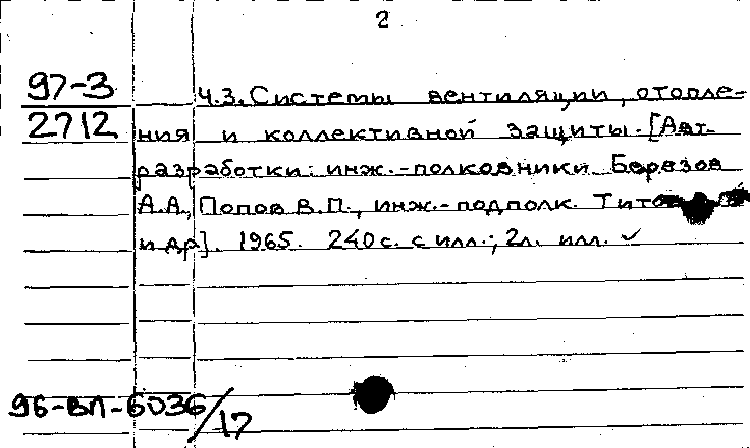 2
97-3
2712
Ч.3. Системы вентиляции, отопле-
ния и коллективной защиты. [Авт.
разработки: инж.-полковники Березов
А.А., Попов В.П., инж.-подполк.
и др]. 1965. 240 с. с илл.; 2л. илл. ✓
96-ВЛ-6036/17